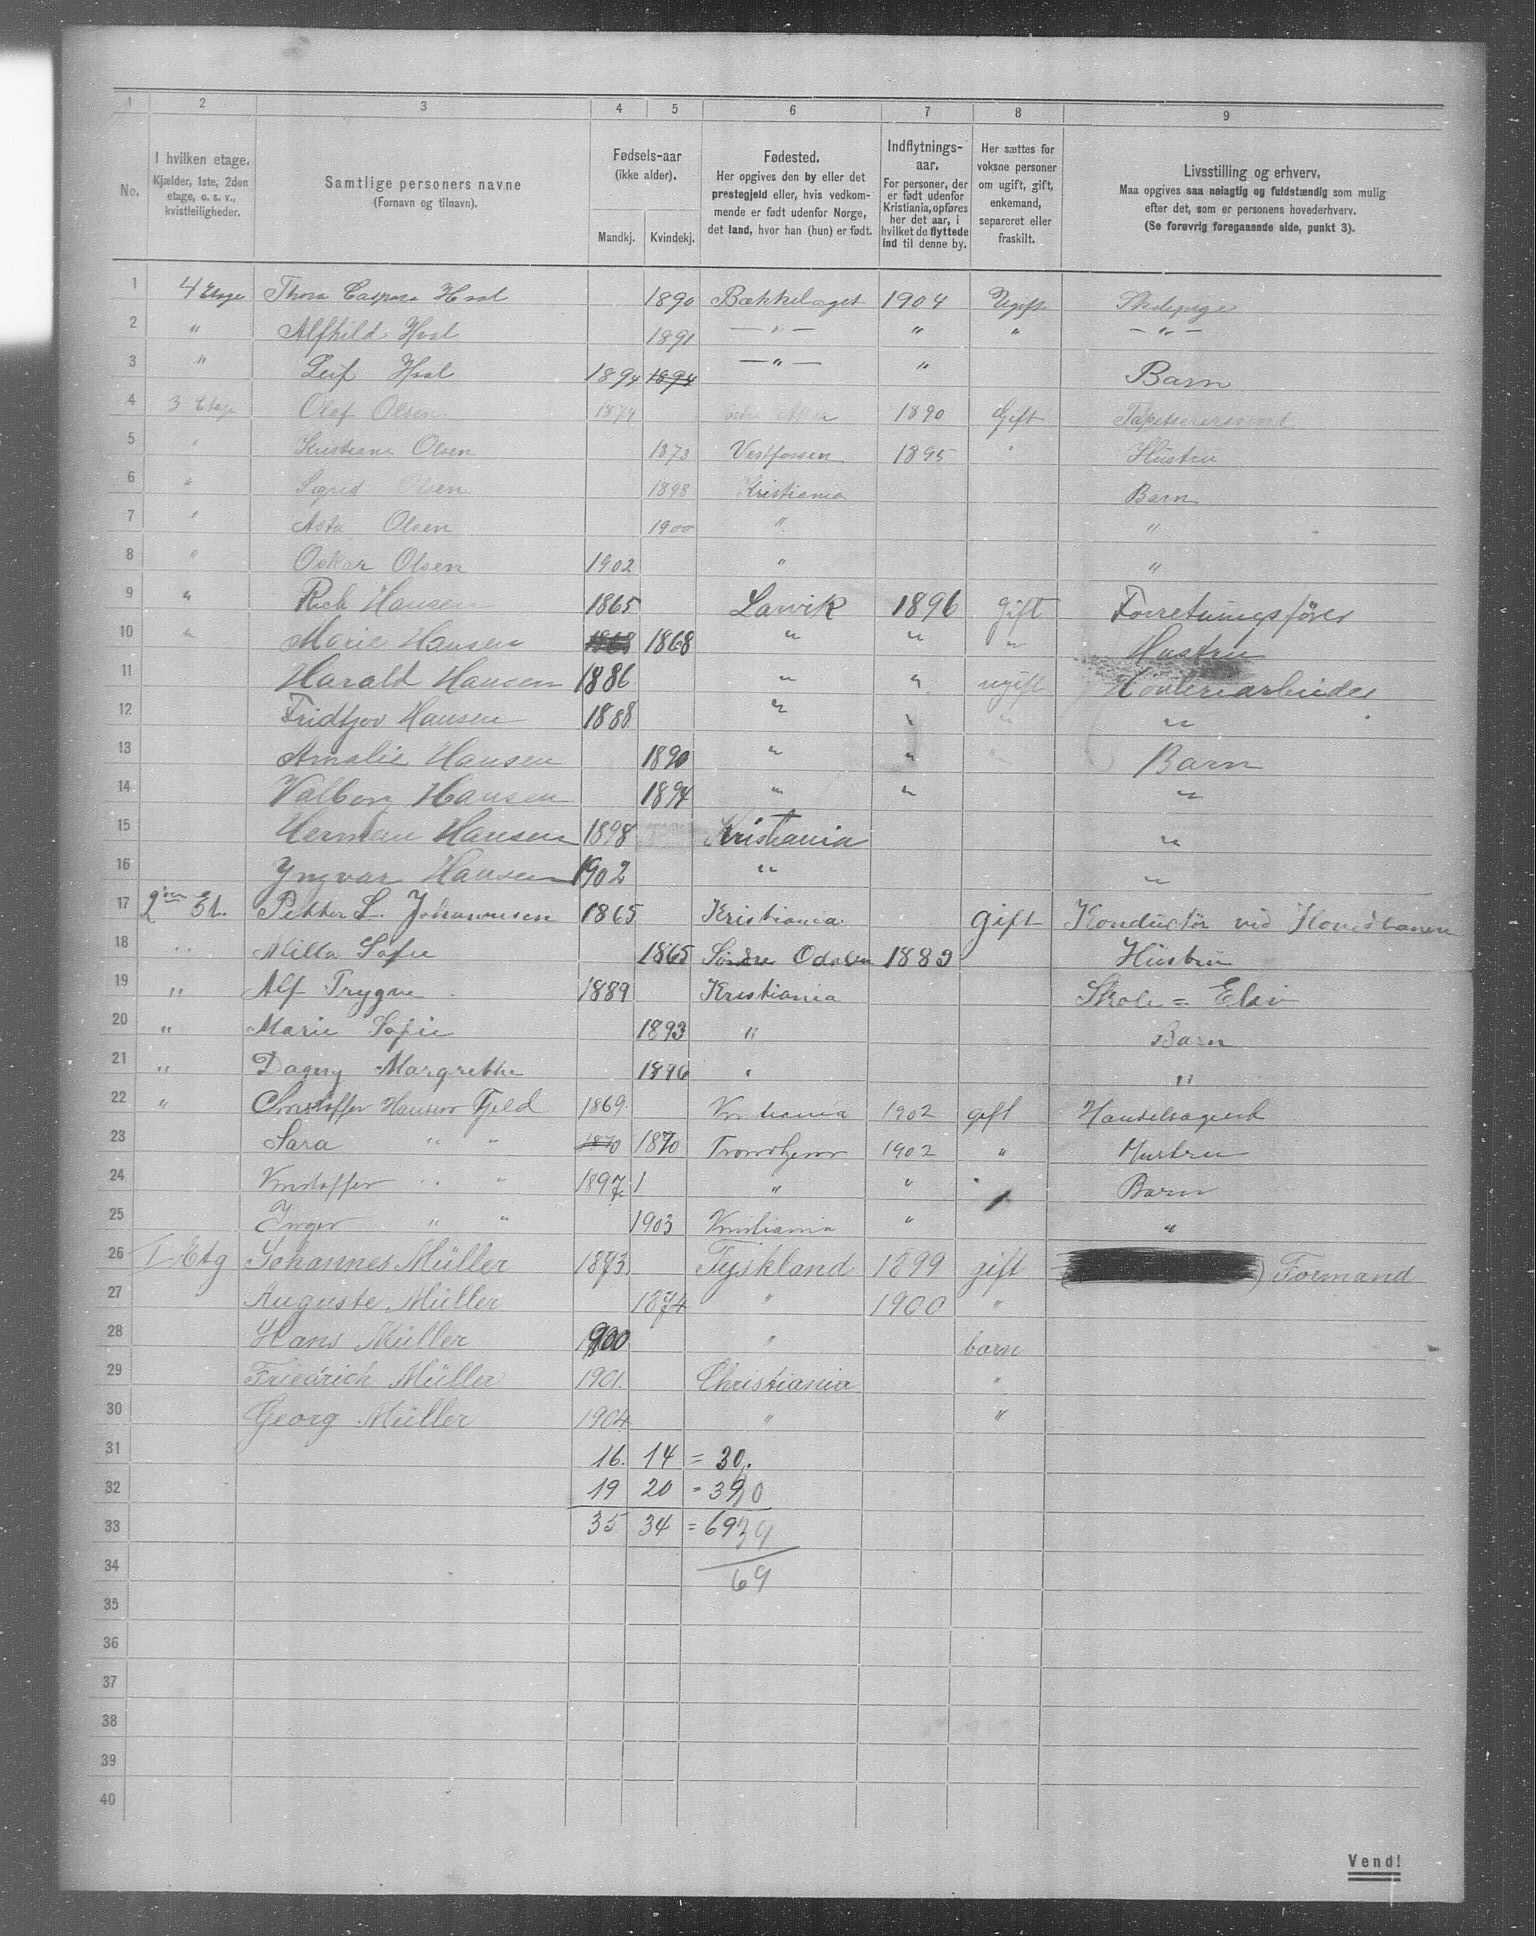 1 2 3 4 5 6 7 8 9
No.
I hvilken etage.
Kjælder, 1ste, 2den
etage, o. s. v.,
kvistleiligheder.
Samtlige personers navne
(Fornavn og tilnavn).
Fødsels-aar
(ikke alder).
Mandkj. Kvindekj.
Fødested.
Her opgives den by eller det
prestegjeld eller, hvis vedkom-
mende er født udenfor Norge,
det land, hvor han (hun) er født.
Indflytnings-
aar.
For personer, der
er født udenfor
Kristiania, opføres
her det aar, i
hvilket de flyttede
ind til denne by.
Her sættes for
voksne personer
om ugift, gift,
enkemand,
separeret eller
fraskilt.
Livsstilling og erhverv.
Maa opgives saa nøiagtig og fuldstændig som mulig
efter det, som er personens hovederhverv.
(Se forøvrig foregaaende side, punkt 3).
1 4 Etage Thora 1890 Bækkelaget 1904 Ugift Skolepige
2 " Alfhild 1891 — " — " " — " —
3 " Leif 1894 1894 — " — " Barn
4 3 Etage Olaf Olsen 1874 1890 Gift Tapetserersvend
5 " Kristiane Olsen 1873 Vestfossen 1895 " Hustru
6 " Sigrid Olsen 1898 Kristiania Barn
7 " Asta Olsen 1900 " "
8 " Oskar Olsen 1902 " "
9 " Rich Hansen 1865 Larvik 1896 gift Forretningsfører
10 " Marie Hansen 1868 1868 " " " Hustru
11 Harald Hansen 1886 " " ugift Høvleriarbeider
12 Fridtjov Hansen 1888 " " " "
13 Amalie Hansen 1890 " " Barn
14 Valborg Hansen 1894 " " "
15 Herman Hansen 1898 Kristiania "
16 Yngvar Hansen 1902 " "
17 2den Et. Petter L. Johannesen 1865 Kristiania gift Konductør ved Hovedbanen
18 " Milla Sofie 1865 Søndre Odalen 1889 Hustru
19 " Alf Trygve 1889 Kristiania Skole = Elev
20 " Marie Sofie 1893 " Barn
21 " Dagny Margrethe 1896 " "
22 " Christoffer Hansen Fjeld 1869 Kristiania 1902 gift Handelsagent
23 Sara " " 1870 1870 Trondhjem 1902 " Hustru
24 Kristoffer " " 1897 1 " " Barn
25 Inger " " 1903 Kristiania " "
26 1 Etg Johannes Müller 1873 Tyskland 1899 gift ) Formand
27 Auguste Müller 1874 " 1900 "
28 Hans Müller 1900 " barn
29 Friedrich Müller 1901. Christiania "
30 Georg Müller 1904 " "
31 16. 14 = 30.
32 19 20 = 39 40
33 35 34 = 69 39
34 69
35
36
37
38
39
40
Vend!